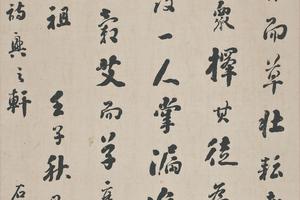 而草壯耘
眾擇其徒為
一人掌漏進
穀艾而草衰
祖 壬子秋
之軒 石